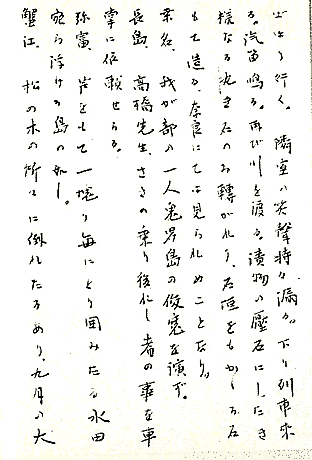 ぶゆう行く。隣室の笑聲時々漏る。下り列車來
る。汽笛鳴る。再び川を渡る。漬物の壓石にしたき
様なる丸き石のみ轉がれり、石垣をもかゝる石
もて造る、奈良にては見られぬことなり。
桑名、我が部の一人鬼界島の俊寛を演ず。
長島、高橋先生、さきの乗り後れし者の事を車
掌に依頼せらる。
弥富、岩をもて一塊り毎にとり囲みたる水田
宛ら浮ける島の如し。
蟹江、松の木の所々に倒れたるあり、九月の大